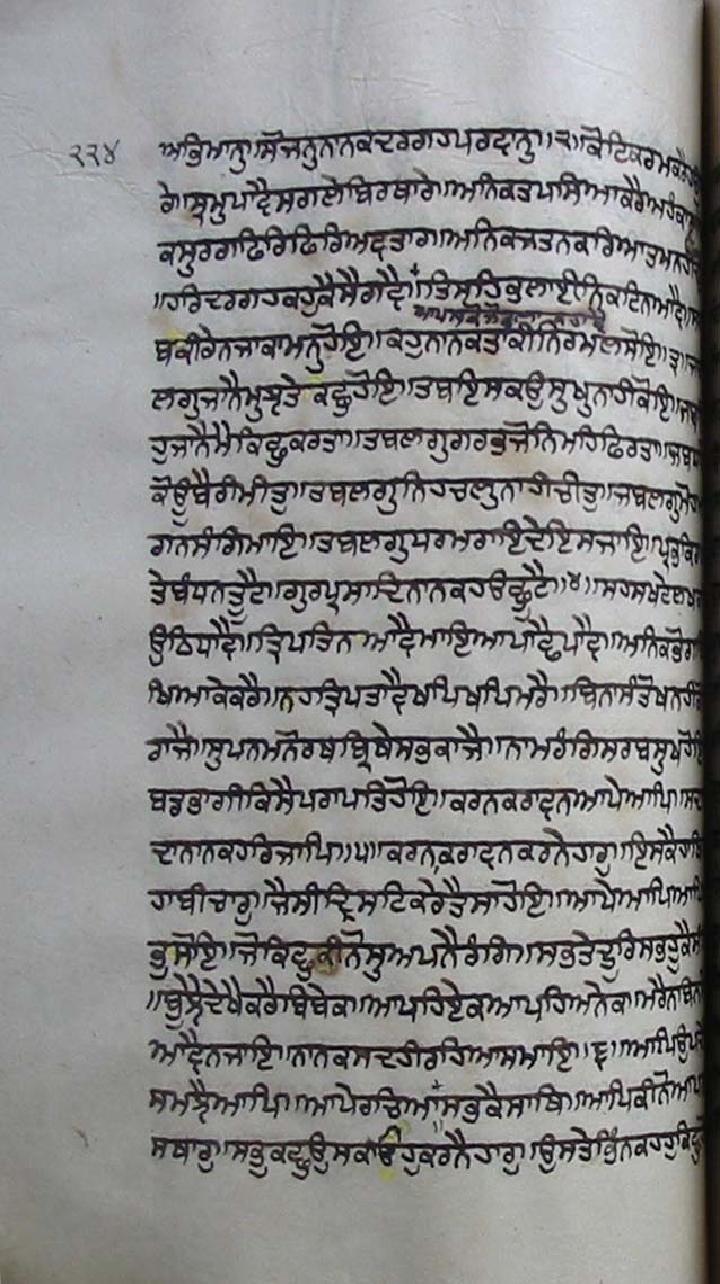 ੨੨੪
ਅਭਿਮਾਨੁ॥ਸੋਜਨੁਨਾਨਕਦਰਗਹਪਰਵਾਨੁ॥੨॥ਕੋਟਿਕਰਮਕਰੈ
ਰੇ॥ਸ੍ਰਮੁਪਾਵੈਸਗਲੇਬਿਰਥਾਰੇ॥ਅਨਿਕਤਪਸਿਆਕਰੈਅਹੰਕਾਰ
ਕਸੁਰਗਫਿਰਿਫਿਰਿਅਵਤਾਰ॥ਅਨਿਕਜਤਨਕਰਿਆਤਮਨਹੀ
॥ਹਰਿਦਰਗਹਕਹੁਕੈਸੈਗਵੈ॥
ਆਪਸਕਉ
ਬਕੀਰੇਨਜਾਕਾਮਨੁਹੋਇ॥ਕਹੁਨਾਨਕਤਾਕੀਨਿਰਮਲਸੋਇ॥੩॥ਜ
ਲਗੁਜਾਨੈਮੁਝਤੇਕਛੁਹੋਇ॥ਤਬਇਸਕਉਸੁਖੁਨਾਹੀਕੋਇ॥ਜਬ
ਹੁਜਾਨੈਮੈਕਿਛੁਕਰਤਾ॥ਤਬਲਗੁਗਰਭਜੋਨਿਮਹਿਫਿਰਤਾ॥ਜਬ
ਕੋਊਬੈਰੀਮੀਤੁ॥ਤਬਲਗੁਨਿਹਚਲੁਨਾਹੀਚੀਤੁ॥ਜਬਲਗੁਮੋਹ
ਗਨਸੰਗਿਮਾਇ॥ਤਬਲਗੁਧਰਮਰਾਇਦੇਇਸਜਾਇ॥ਪ੍ਰਭਕਿ
ਤੇਬੰਧਨਤੂਟੈ॥ਗੁਰਪ੍ਰਸਾਦਿਨਾਨਕਹਉਛੂਟੈ॥੪॥ਸਹਸਖਟੇਲਖ
ਉਠਿਧਾਵੈ॥ਤ੍ਰਿਪਤਿਨਆਵੈਮਾਇਆਪਾਛੈਪਾਵੈ॥ਅਨਿਕਭੋਗ
ਖਿਆਕੇਕਰੈ॥ਨਹਤ੍ਰਿਪਤਾਵੈਖਪਿਖਪਿਮਰੈ॥ਬਿਨਾਸੰਤੋਖਨਹੀ
ਰਾਜੈ॥ਸੁਪਨਮਨੋਰਥਬ੍ਰਿਥੇਸਭਕਾਜੈ॥ਨਾਮਰੰਗਿਸਰਬਸੁਖਹੋਇ
ਬਡਭਾਗੀਕਿਸੈਪਰਾਪਤਿਹੋਇ॥ਕਰਨਕਰਾਵਨਆਪੇਆਪਿ॥ਸਦ
ਦਾਨਾਨਕਹਰਿਜਾਪਿ॥੫॥ਕਰਨਕਰਾਵਨਕਰਨੈਹਾਰੁ॥ਇਸਕੈਹਾਥਿ
ਹਾਬੀਚਾਰੁ॥ਜੈਸੀਦ੍ਰਿਸਟਿਕਰੇਤੈਸਾਹੋਇ॥ਆਪੇਆਪਿਆਪਿ
ਭੁਸੋਇ॥ਜੋਕਿਛੁਕੀਨੋਸੁਅਪਨੈਰੰਗਿ॥ਸਭਤੇਦੂਰਿਸਭਹੂਕੈਸੰ
॥ਬੂਝੈਦੇਖੈਕਰੈਬਿਬੇਕ॥ਆਪਹਿਏਕਆਪਹਿਅਨੇਕ॥ਮਰੈਨਬਿਨ
ਆਵੈਨਜਾਇ॥ਨਾਨਕਸਦਹੀਰਹਿਆਸਮਾਇ॥੬॥ਆਪਿਉਪਦੇ
ਸਮਝੈਆਪਿ॥ਆਪੇਰਚਿਆਸਭਕੈਸਾਥਿ॥ਆਪਿਕੀਨੋਆਪ
ਸਥਾਰੁ॥ਸਭੁਕਛੁਉਸਕਾਓਹੁਕਰਨੈਹਾਰੁ॥ਉਸਤੇਭਿੰਨਕਹਹੁਕਿਛੁ